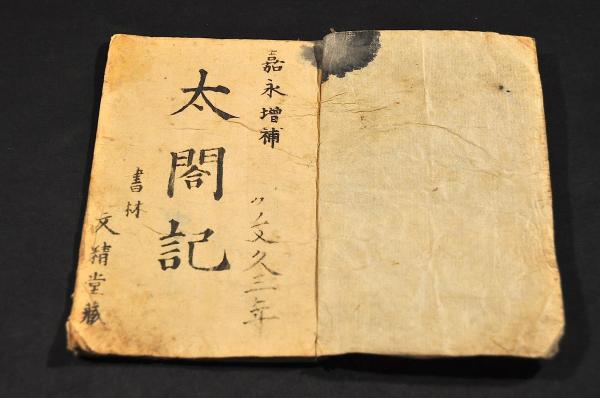 嘉永增補
文久三年
太閤記
書林
文精堂藏